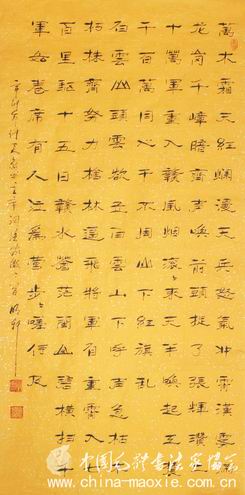 萬木霜天紅爛漫天兵怒氣沖霄漢霧滿
龙岗千嶂暗齊聲唤前頭捉了張輝瓚二
十萬軍重入贛風煙滾滾來天半喚起工農
千百萬同心干不周山下紅旗乱
白雲山頭雲欲立白雲山下呼声急枯木
朽株齊努力槍林逼飛將軍自重霄入七
百里驱十五日贛水苍茫閩山碧橫扫千
軍如卷席有人泣為營步步嗟何及
中国毛体书法家协会
www.china-maoxie.com.cn